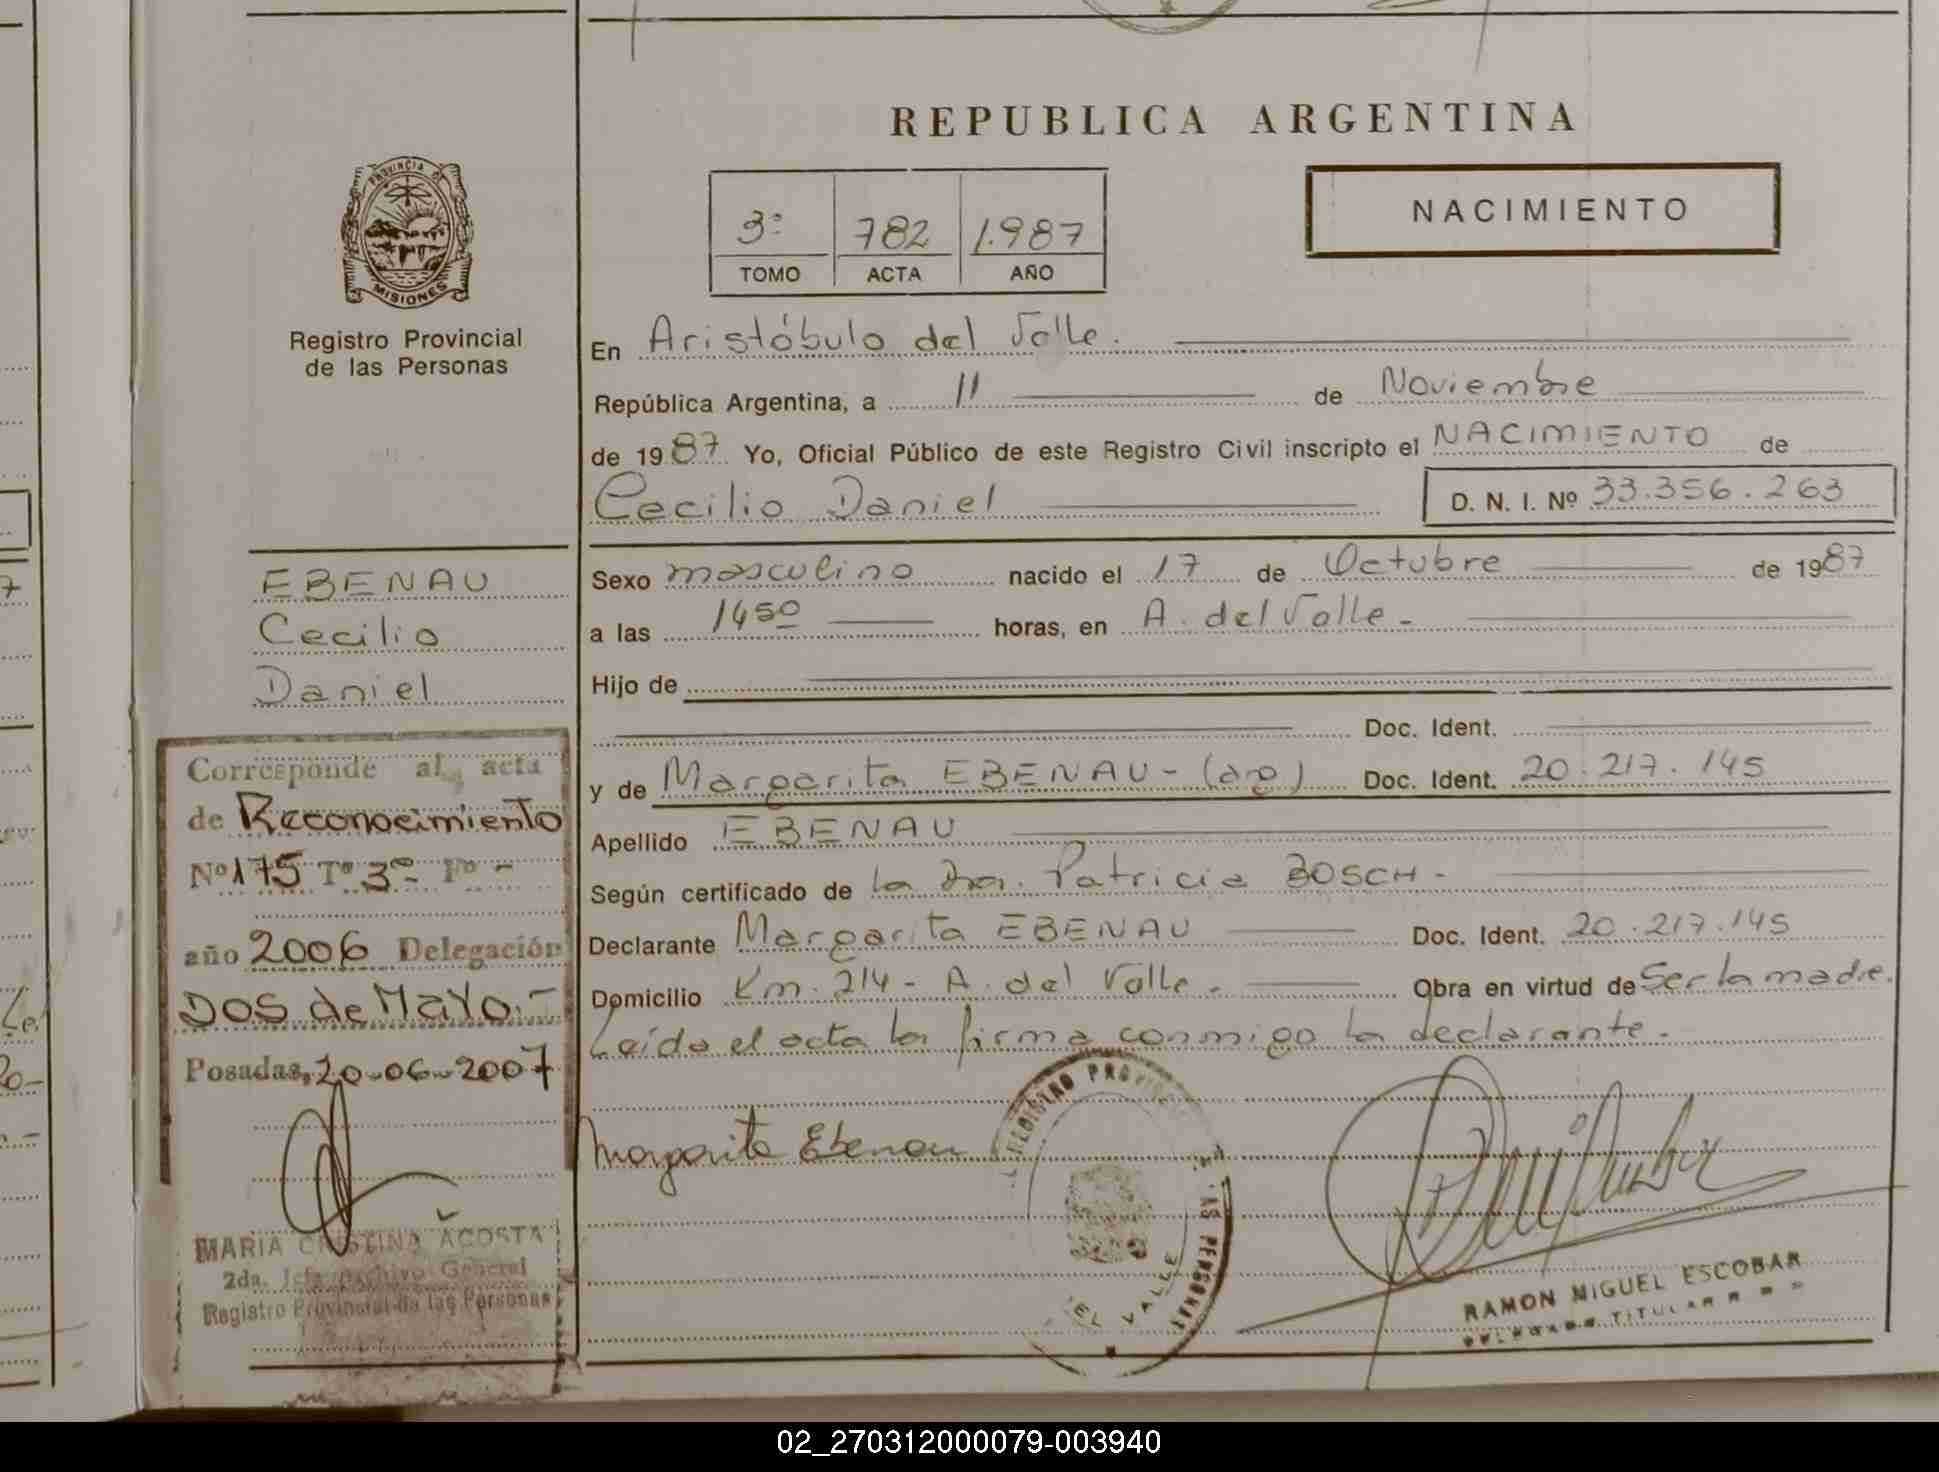 REPUBLICA ARGENTINA
PROVINCIA D
MISIONES
Registro Provincial
de las Personas
3º 782 1.987
TOMO ACTA AÑO
NACIMIENTO
En Aristóbulo del Valle.
República Argentina, a 11 de Noviembre
de 1987 Yo, Oficial Público de este Registro Civil inscripto el NACIMIENTO de
Cecilio Daniel D. N. I. Nº 33.356.263
EBENAU
Cecilio
Daniel
Sexo masculino nacido el 17 de Octubre de 1987
a las 1450 horas, en A. del Valle.-
Hijo de
Doc. Ident.
y de Margarita EBENAU - (arg) Doc. Ident. 20.217.145
Apellido EBENAU
Según certificado de la Dra. Patricia BOSCH.-
Declarante Margarita EBENAU Doc. Ident. 20.217.145
Domicilio Km. 214 - A. del Valle.- Obra en virtud de Ser la madre.
Leída el acta la firma conmigo la declarante.-
Corresponde al acta
de Reconocimiento
Nº 175 Tº 3º Fº -
año 2006 Delegación
DOS de MAYO.-
Posadas, 20-06-2007
MARIA CRISTINA ACOSTA
2da. Jefa Archivo General
Registro Provincial de las Personas
Margarita Ebenau
REGISTRO PROVINCIAL
LAS PERSONAS
DEL VALLE
RAMON MIGUEL ESCOBAR
DELEGADO TITULAR R P P
02_270312000079-003940